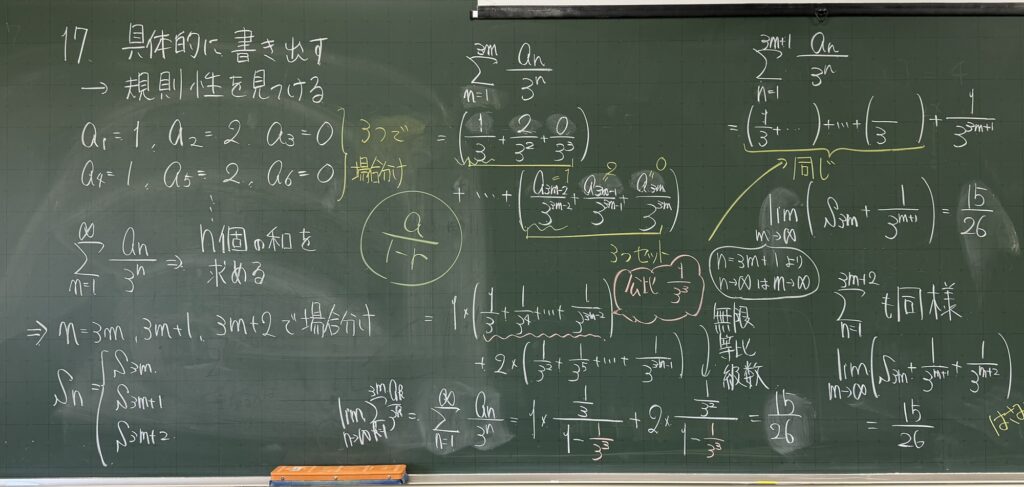 17. 具体的に書き出す
→ 規則性を見つける
a₁=1, a₂=2. a₃=0
a₄=1, a₅=2, a₆=0
3つで
場合分け
⋮
∞Σn=1 an/3ⁿ ⇒ n個の和を
求める
a/(1-r)
⇒ n=3m, 3m+1, 3m+2で場合分け
Sn = { S3m.
S3m+1
S3m+2.
3mΣn=1 an/3ⁿ
= (1/3 + 2/3² + 0/3³)
+ … + (a3m-2/3^(3m-2) + a3m-1/3^(3m-1) + a3m/3^(3m))
=1 2 0
3つセット
= 1×(1/3 + 1/3⁴ + … + 1/3^(3m-2))
公比 1/3³
+ 2×(1/3² + 1/3⁵ + … + 1/3^(3m-1))
無限
等比
級数
= ∞Σn=1 an/3ⁿ = 1× (1/3)/(1-1/3³) + 2× (1/3²)/(1-1/3³) = 15/26
3m+1Σn=1 an/3ⁿ
= (1/3 + …) + … + ( /3 ) + 1/3^(3m+1)
同じ
lim m→∞ (S3m + 1/3^(3m+1)) = 15/26
n=3m+1より
n→∞はm→∞
3m+2Σn=1 も同様
lim m→∞ (S3m + 1/3^(3m+1) + 1/3^(3m+2))
= 15/26